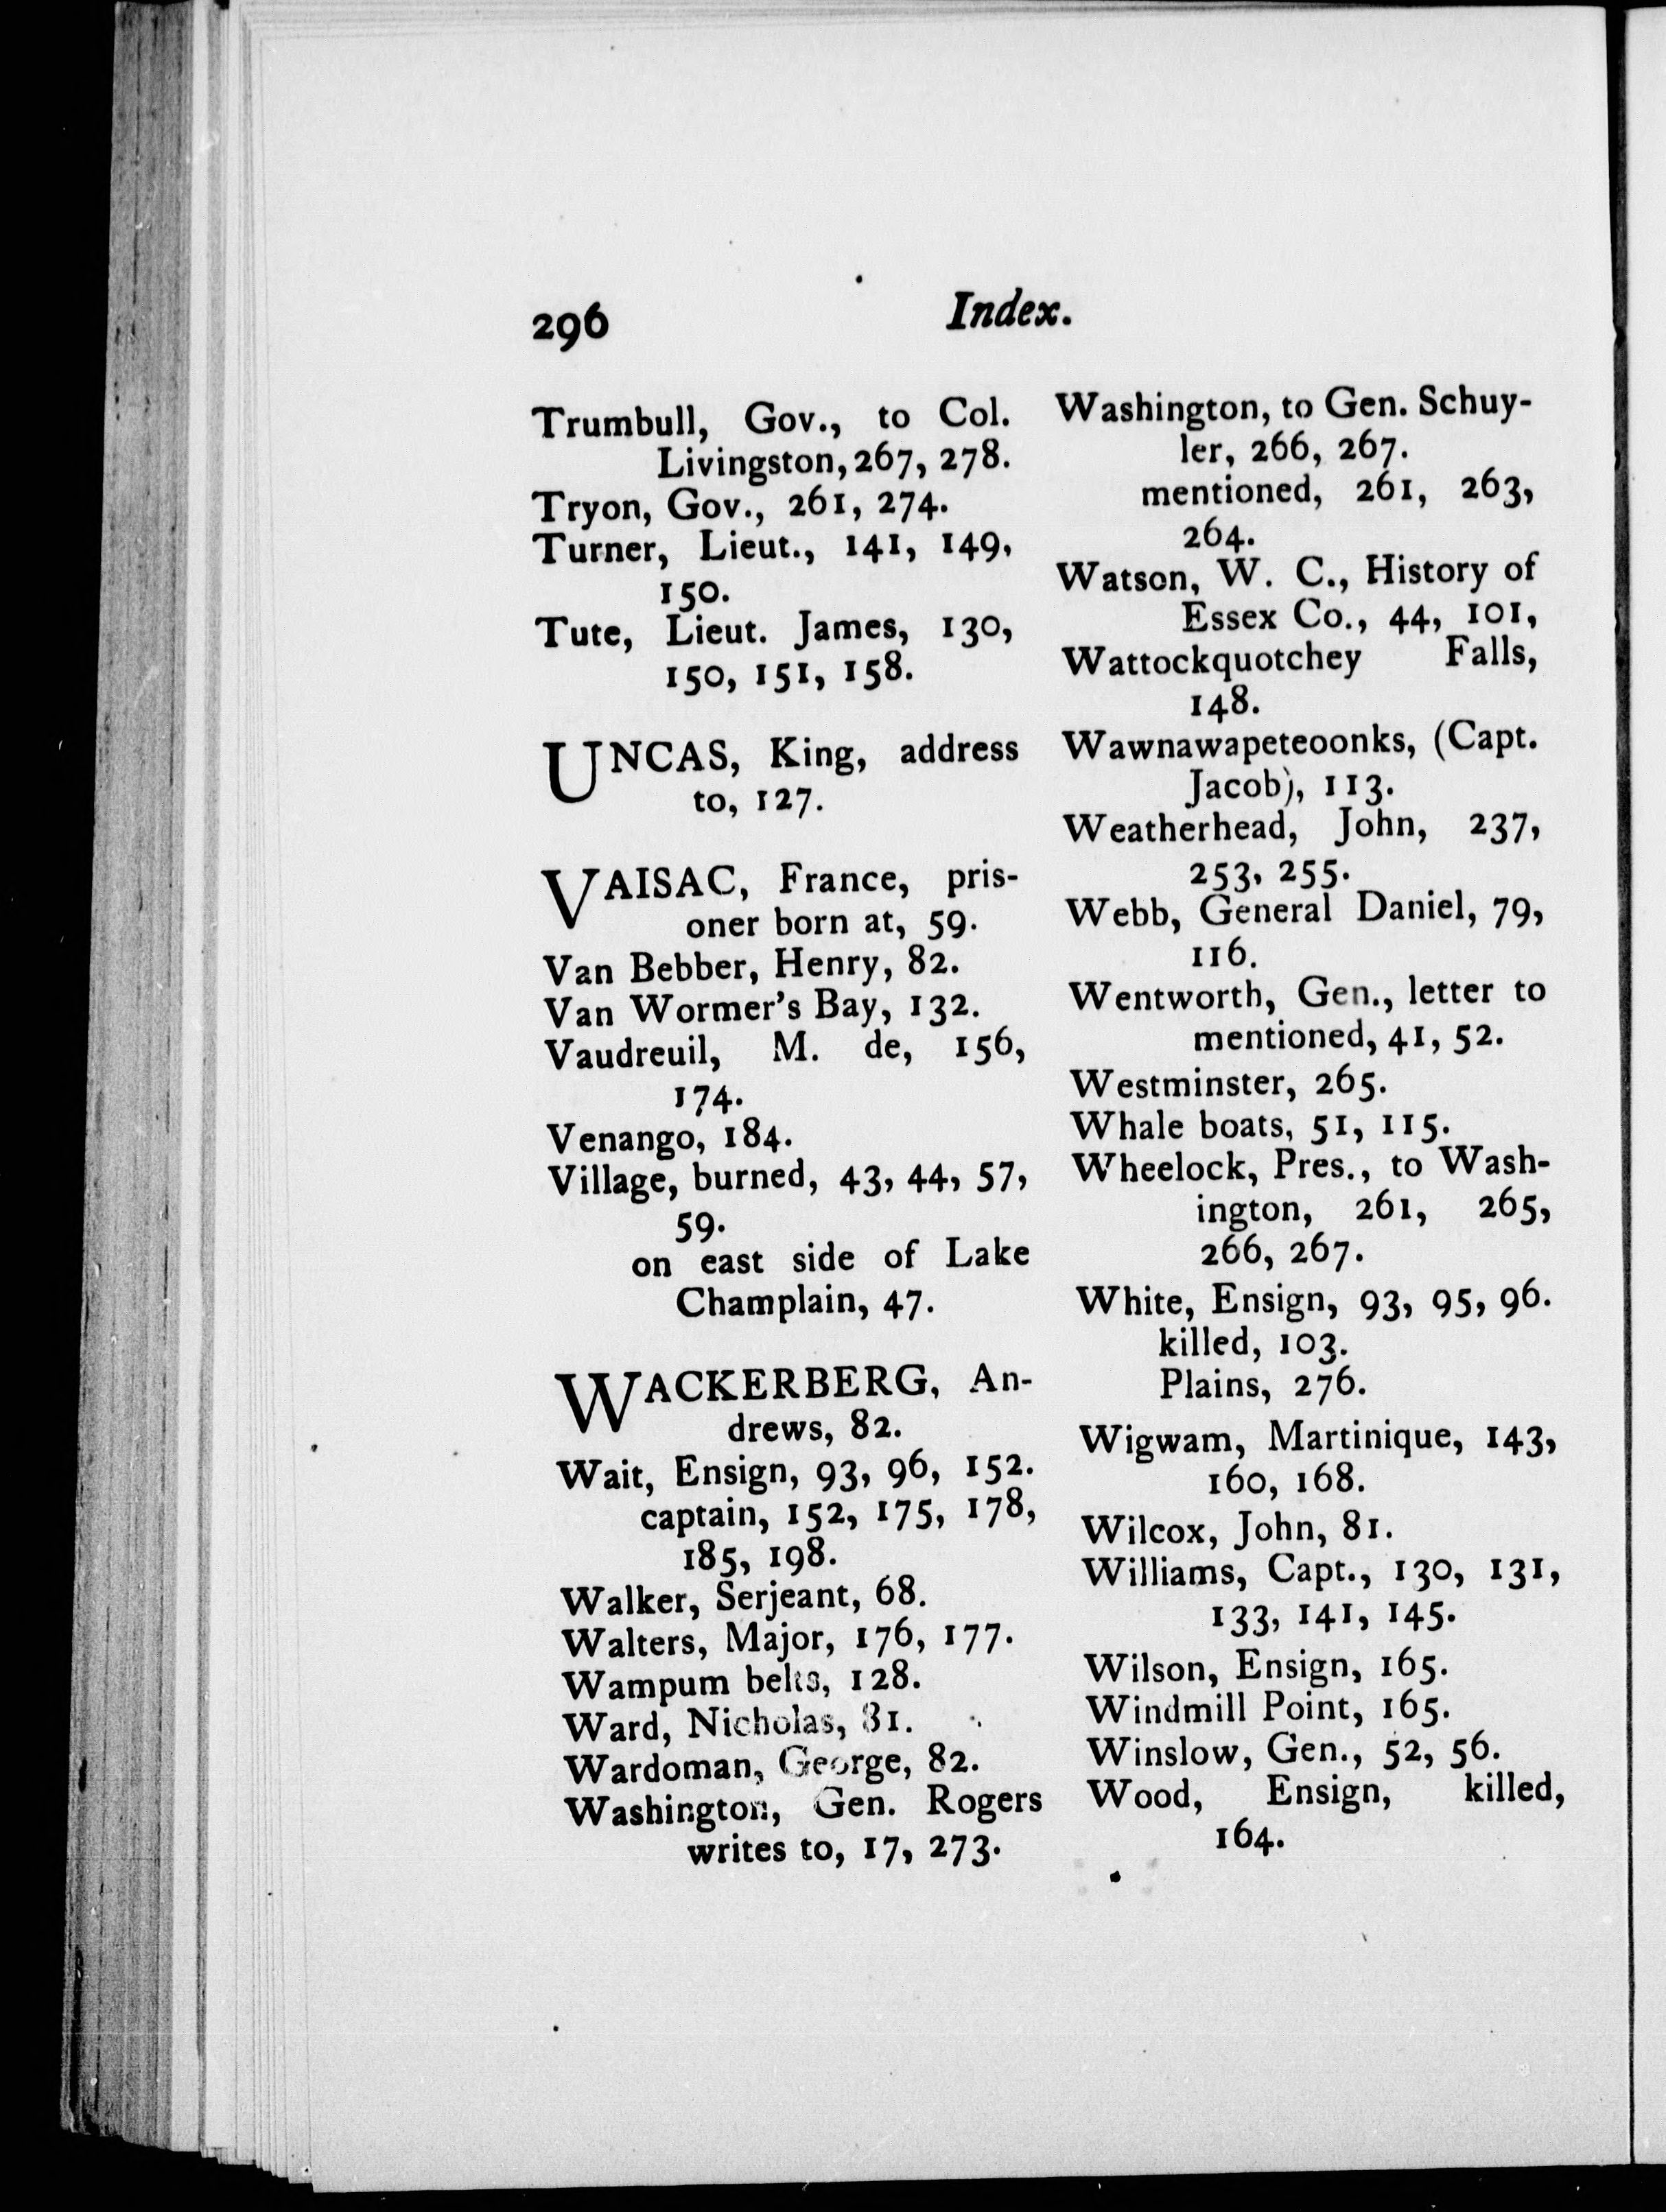 296
Index.
Trumbull, Gov., to Col.
Livingston, 267, 278.
Tryon, Gov., 261, 274.
Turner, Lieut., 141, 149,
150.
Tute, Lieut. James, 130,
150, 151, 158.
UNCAS, King, address
to, 127.
VAISAC, France, pris-
oner born at, 59.
Van Bebber, Henry, 82.
Van Wormer's Bay, 132.
Vaudreuil, M. de, 156,
174.
Venango, 184.
Village, burned, 43, 44, 57,
59.
on east side of Lake
Champlain, 47.
WACKERBERG, An-
drews, 82.
Wait, Ensign, 93, 96, 152.
captain, 152, 175, 178,
185, 198.
Walker, Serjeant, 68.
Walters, Major, 176, 177.
Wampum belts, 128.
Ward, Nicholas, 81.
Wardoman, George, 82.
Washington, Gen. Rogers
writes to, 17, 273.
Washington, to Gen. Schuy-
ler, 266, 267.
mentioned, 261, 263,
264.
Watson, W. C., History of
Essex Co., 44, 101,
Wattockquotchey Falls,
148.
Wawnawapeteoonks, (Capt.
Jacob), 113.
Weatherhead, John, 237,
253, 255.
Webb, General Daniel, 79,
116.
Wentworth, Gen., letter to
mentioned, 41, 52.
Westminster, 265.
Whale boats, 51, 115.
Wheelock, Pres., to Wash-
ington, 261, 265,
266, 267.
White, Ensign, 93, 95, 96.
killed, 103.
Plains, 276.
Wigwam, Martinique, 143,
160, 168.
Wilcox, John, 81.
Williams, Capt., 130, 131,
133, 141, 145.
Wilson, Ensign, 165.
Windmill Point, 165.
Winslow, Gen., 52, 56.
Wood, Ensign, killed,
164.